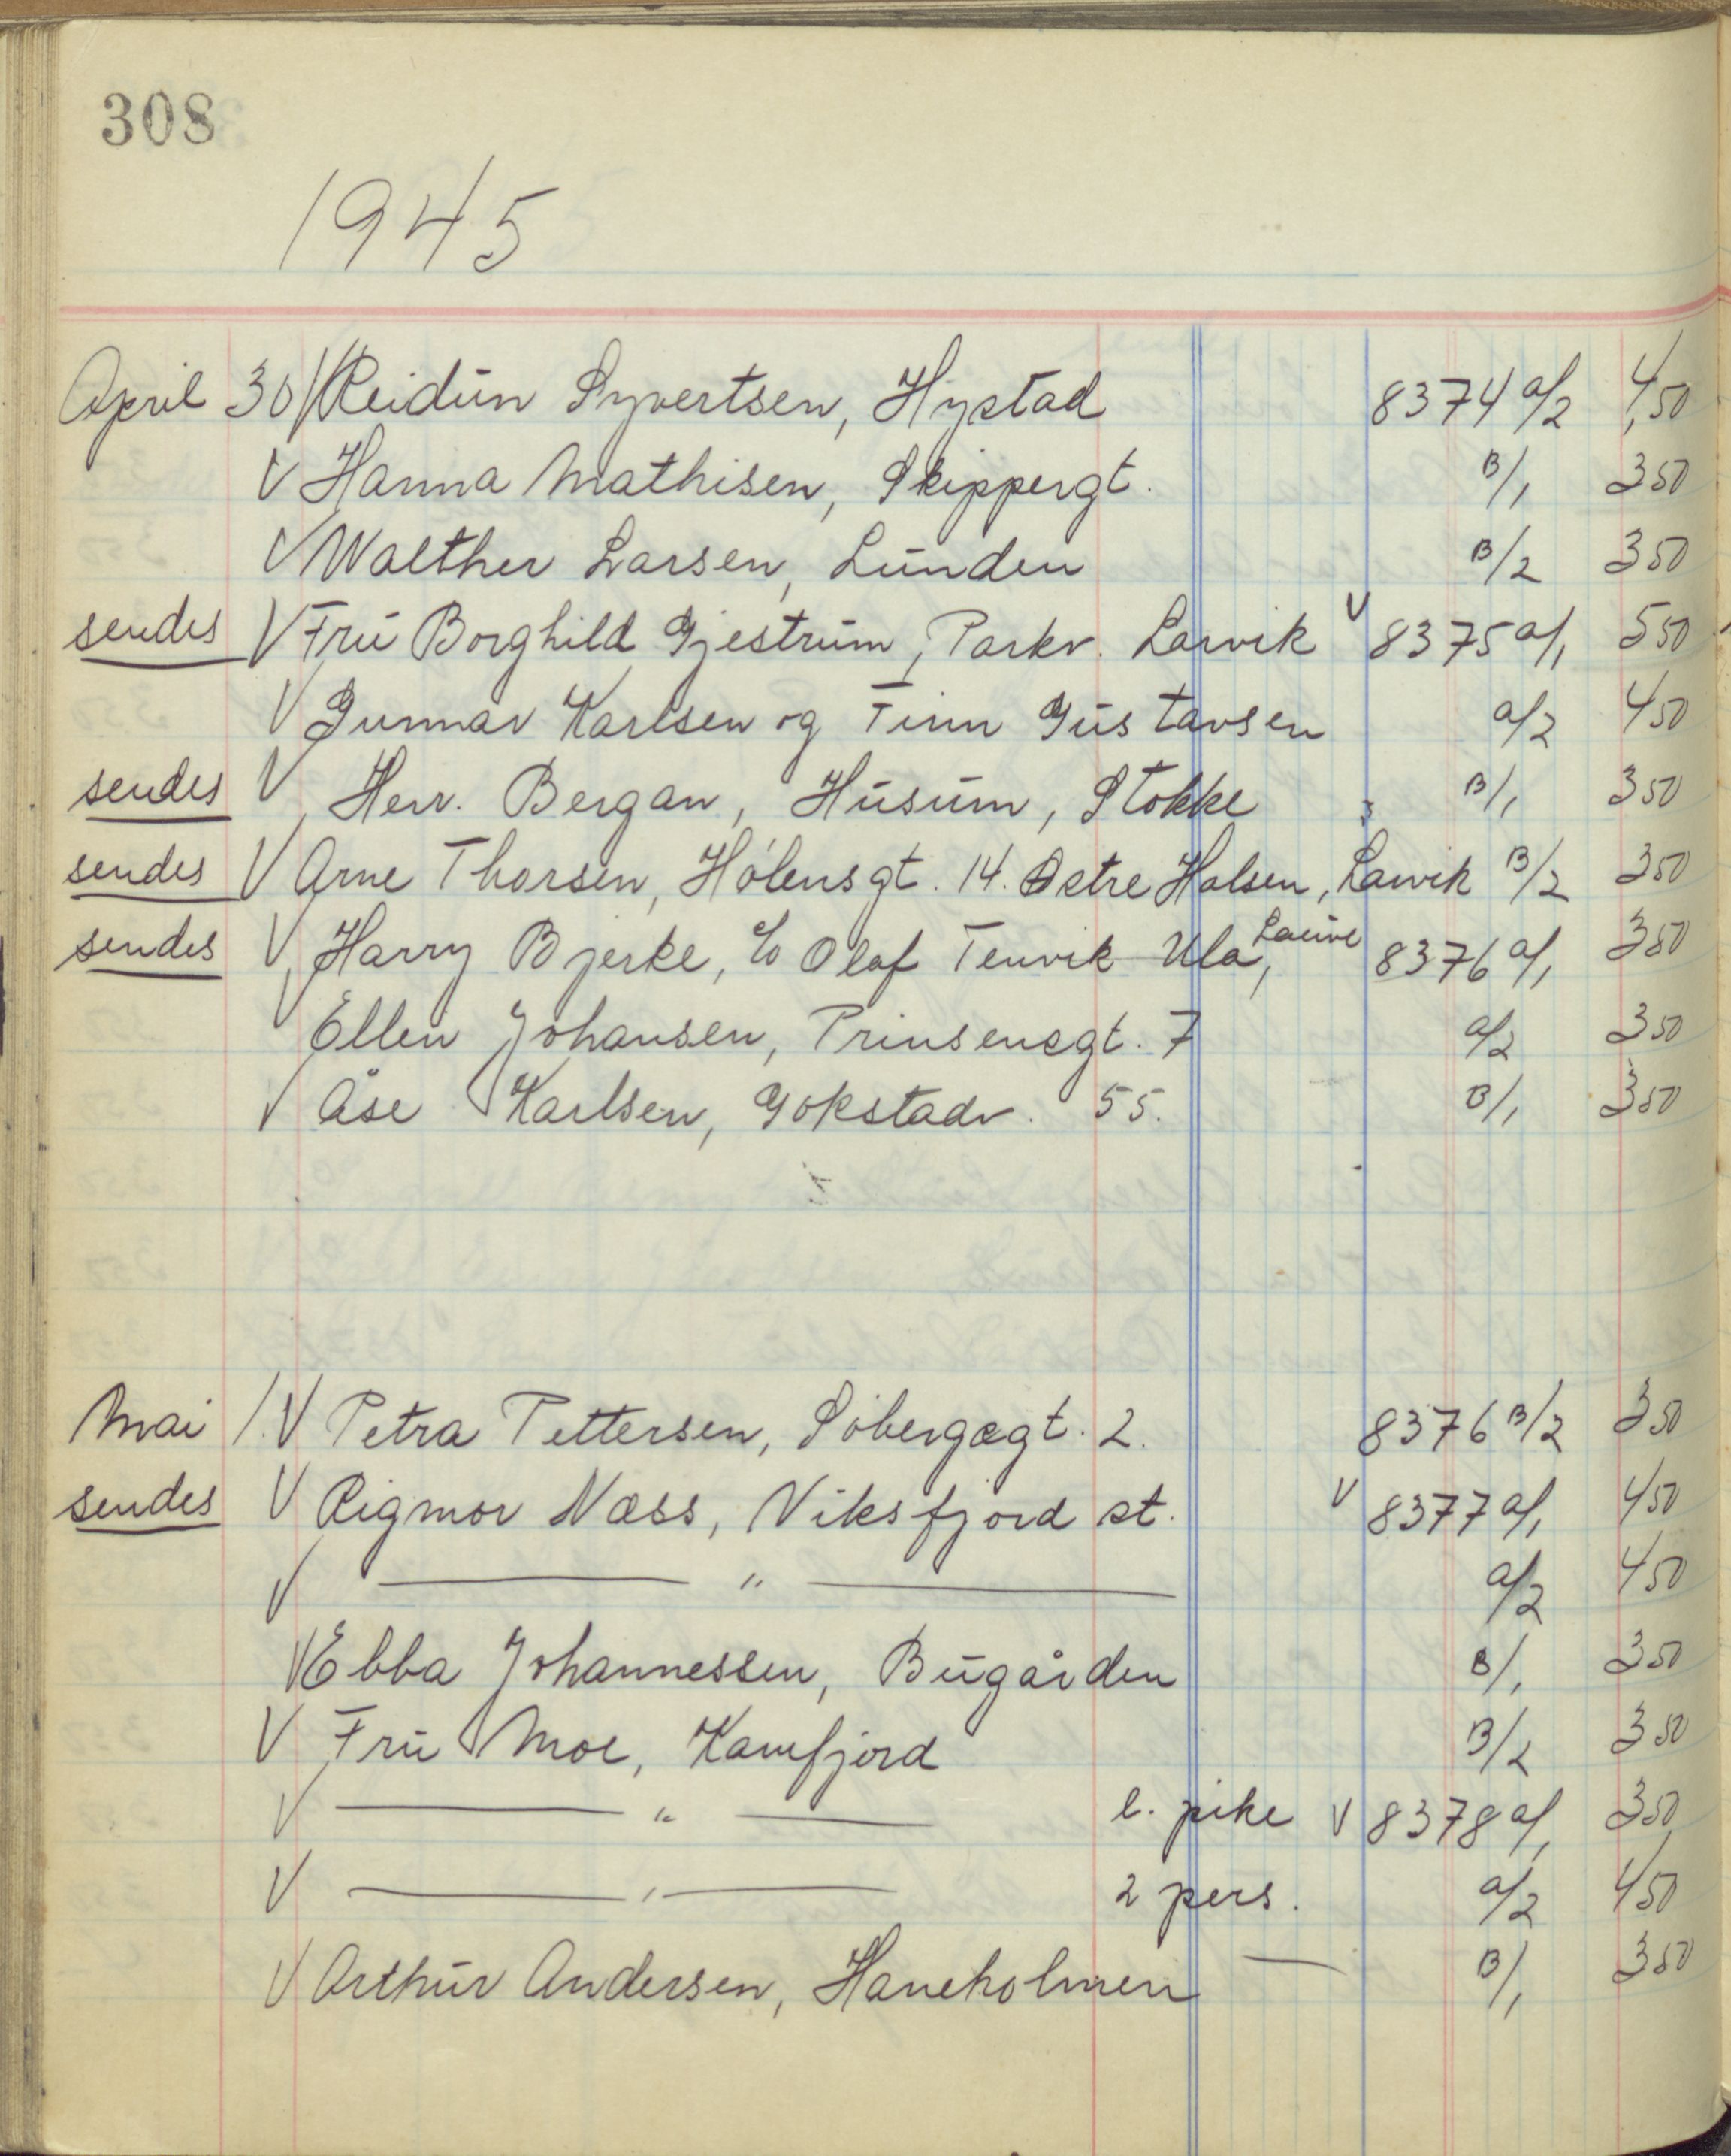 308
1945
April 30 V Reidun Syvertsen, Hystad 8374 a/2 4,50
V Hanna Mathisen, Skippergt. B/1 350
V Walther Larsen, Lunden B/2 350
sendes V Fru Borghild Gjestrum, Parkv. Larvik V 8375 a/1 550
V Gunnar Karlsen og Finn Gustavsen a/2 450
sendes V Herr. Bergan, Husum, Stokke B/1 350
sendes V Arne Thorsen, Hölensgt. 14. Østre Halsen, Larvik B/2 350
sendes V Harry Bjerke, c/o Olaf Tenvik Ula, Lauve 8376 a/1 350
V Ellen Johansen, Prinsensgt. 7 a/2 350
V Åse Karlsen, Gokstadv. 55. B/1 350
Mai 1. V Petra Pettersen, Söbergsgt. 2. 8376 B/2 350
sendes V Rigmor Næss, Viksfjord st. V 8377 a/1 450
V — " — a/2 450
V Ebba Johannessen, Bugården B/1 350
V Fru Moe, Kamfjord B/2 350
V — " — l. pike V 8378 a/1 350
V — " — 2 pers. a/2 450
V Arthur Andersen, Haneholmen — B/1 350